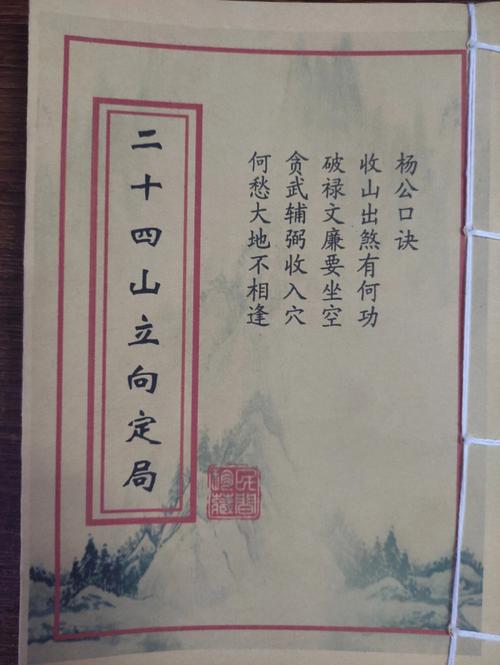 杨公口诀
收山出煞有何功
破禄文廉要坐空
贪武辅弼收入穴
何愁大地不相逢
二十四山立向定局
民间
珍藏